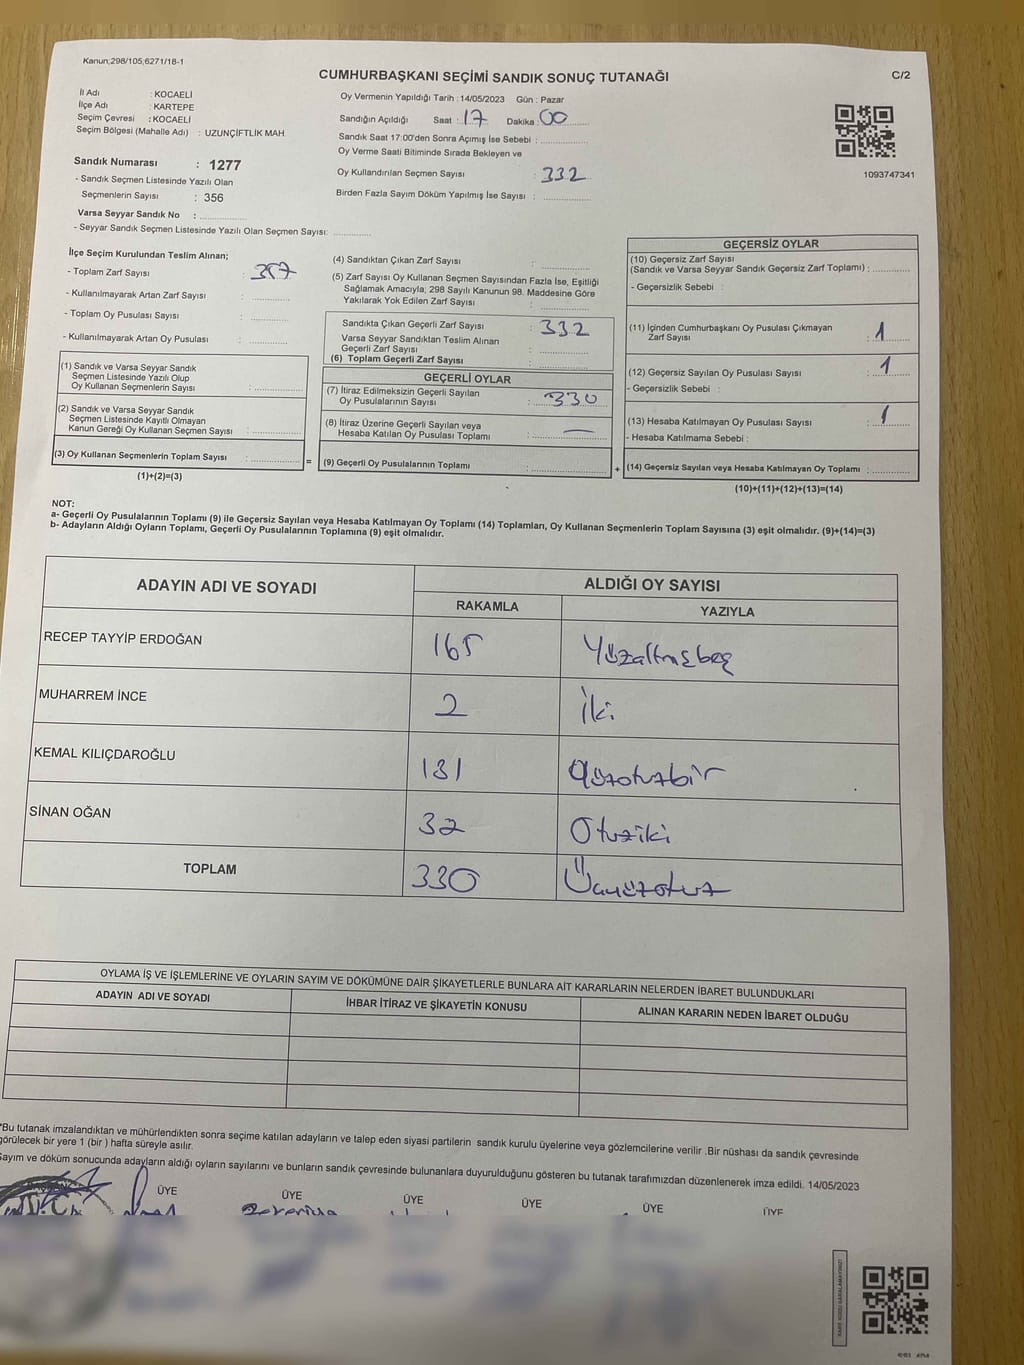 Kanun;298/105,6271/18-1
CUMHURBAŞKANI SEÇİMİ SANDIK SONUÇ TUTANAĞI
C/2
İl Adı : KOCAELİ
İlçe Adı : KARTEPE
Seçim Çevresi : KOCAELİ
Seçim Bölgesi (Mahalle Adı) : UZUNÇİFTLİK MAH.
Sandık Numarası : 1277
- Sandık Seçmen Listesinde Yazılı Olan
Seçmenlerin Sayısı : 356
Varsa Seyyar Sandık No : ............
- Seyyar Sandık Seçmen Listesinde Yazılı Olan Seçmen Sayısı: ............
Oy Vermenin Yapıldığı Tarih : 14/05/2023 Gün : Pazar
Sandığın Açıldığı Saat : 17 Dakika : 00
Sandık Saat 17:00'den Sonra Açımış İse Sebebi : ............
Oy Verme Saati Bitiminde Sırada Bekleyen ve
Oy Kullandırılan Seçmen Sayısı : 332
Birden Fazla Sayım Döküm Yapılmış İse Sayısı : ............
1093747341
İlçe Seçim Kurulundan Teslim Alınan;
- Toplam Zarf Sayısı : 357
- Kullanılmayarak Artan Zarf Sayısı : ............
- Toplam Oy Pusulası Sayısı : ............
- Kullanılmayarak Artan Oy Pusulası : ............
(1) Sandık ve Varsa Seyyar Sandık
Seçmen Listesinde Yazılı Olup
Oy Kullanan Seçmenlerin Sayısı : ............
(2) Sandık ve Varsa Seyyar Sandık
Seçmen Listesinde Kayıtlı Olmayan
Kanun Gereği Oy Kullanan Seçmen Sayısı : ............
(3) Oy Kullanan Seçmenlerin Toplam Sayısı : ............
(1)+(2)=(3)
=
(4) Sandıktan Çıkan Zarf Sayısı : ............
(5) Zarf Sayısı Oy Kullanan Seçmen Sayısından Fazla İse, Eşitliği
Sağlamak Amacıyla, 298 Sayılı Kanunun 98. Maddesine Göre
Yakılarak Yok Edilen Zarf Sayısı : ............
Sandıkta Çıkan Geçerli Zarf Sayısı : 332
Varsa Seyyar Sandıktan Teslim Alınan
Geçerli Zarf Sayısı : ............
(6) Toplam Geçerli Zarf Sayısı : ............
GEÇERLİ OYLAR
(7) İtiraz Edilmeksizin Geçerli Sayılan
Oy Pusulalarının Sayısı : 330
(8) İtiraz Üzerine Geçerli Sayılan veya
Hesaba Katılan Oy Pusulası Toplamı : —
(9) Geçerli Oy Pusulalarının Toplamı : ............
+
GEÇERSİZ OYLAR
(10) Geçersiz Zarf Sayısı
(Sandık ve Varsa Seyyar Sandık Geçersiz Zarf Toplamı) : ............
- Geçersizlik Sebebi :
(11) İçinden Cumhurbaşkanı Oy Pusulası Çıkmayan
Zarf Sayısı : 1
(12) Geçersiz Sayılan Oy Pusulası Sayısı : 1
- Geçersizlik Sebebi :
(13) Hesaba Katılmayan Oy Pusulası Sayısı : 1
- Hesaba Katılmama Sebebi :
(14) Geçersiz Sayılan veya Hesaba Katılmayan Oy Toplamı : ............
(10)+(11)+(12)+(13)=(14)
NOT:
a- Geçerli Oy Pusulalarının Toplamı (9) ile Geçersiz Sayılan veya Hesaba Katılmayan Oy Toplamı (14) Toplamları, Oy Kullanan Seçmenlerin Toplam Sayısına (3) eşit olmalıdır. (9)+(14)=(3)
b- Adayların Aldığı Oyların Toplamı, Geçerli Oy Pusulalarının Toplamına (9) eşit olmalıdır.
ADAYIN ADI VE SOYADI
ALDIĞI OY SAYISI
RAKAMLA YAZIYLA
RECEP TAYYİP ERDOĞAN 165 Yüzaltmışbeş
MUHARREM İNCE 2 İki
KEMAL KILIÇDAROĞLU 131 Yüzotuzbir
SİNAN OĞAN 32 Otuziki
TOPLAM 330 Üçyüzotuz
OYLAMA İŞ VE İŞLEMLERİNE VE OYLARIN SAYIM VE DÖKÜMÜNE DAİR ŞİKAYETLERLE BUNLARA AİT KARARLARIN NELERDEN İBARET BULUNDUKLARI
ADAYIN ADI VE SOYADI İHBAR İTİRAZ VE ŞİKAYETİN KONUSU ALINAN KARARIN NEDEN İBARET OLDUĞU
*Bu tutanak imzalandıktan ve mühürlendikten sonra seçime katılan adayların ve talep eden siyasi partilerin sandık kurulu üyelerine veya gözlemcilerine verilir .Bir nüshası da sandık çevresinde
görülecek bir yere 1 (bir ) hafta süreyle asılır.
Sayım ve döküm sonucunda adayların aldığı oyların sayılarını ve bunların sandık çevresinde bulunanlara duyurulduğunu gösteren bu tutanak tarafımızdan düzenlenerek imza edildi. 14/05/2023
ÜYE ÜYE ÜYE ÜYE ÜYE ÜYE